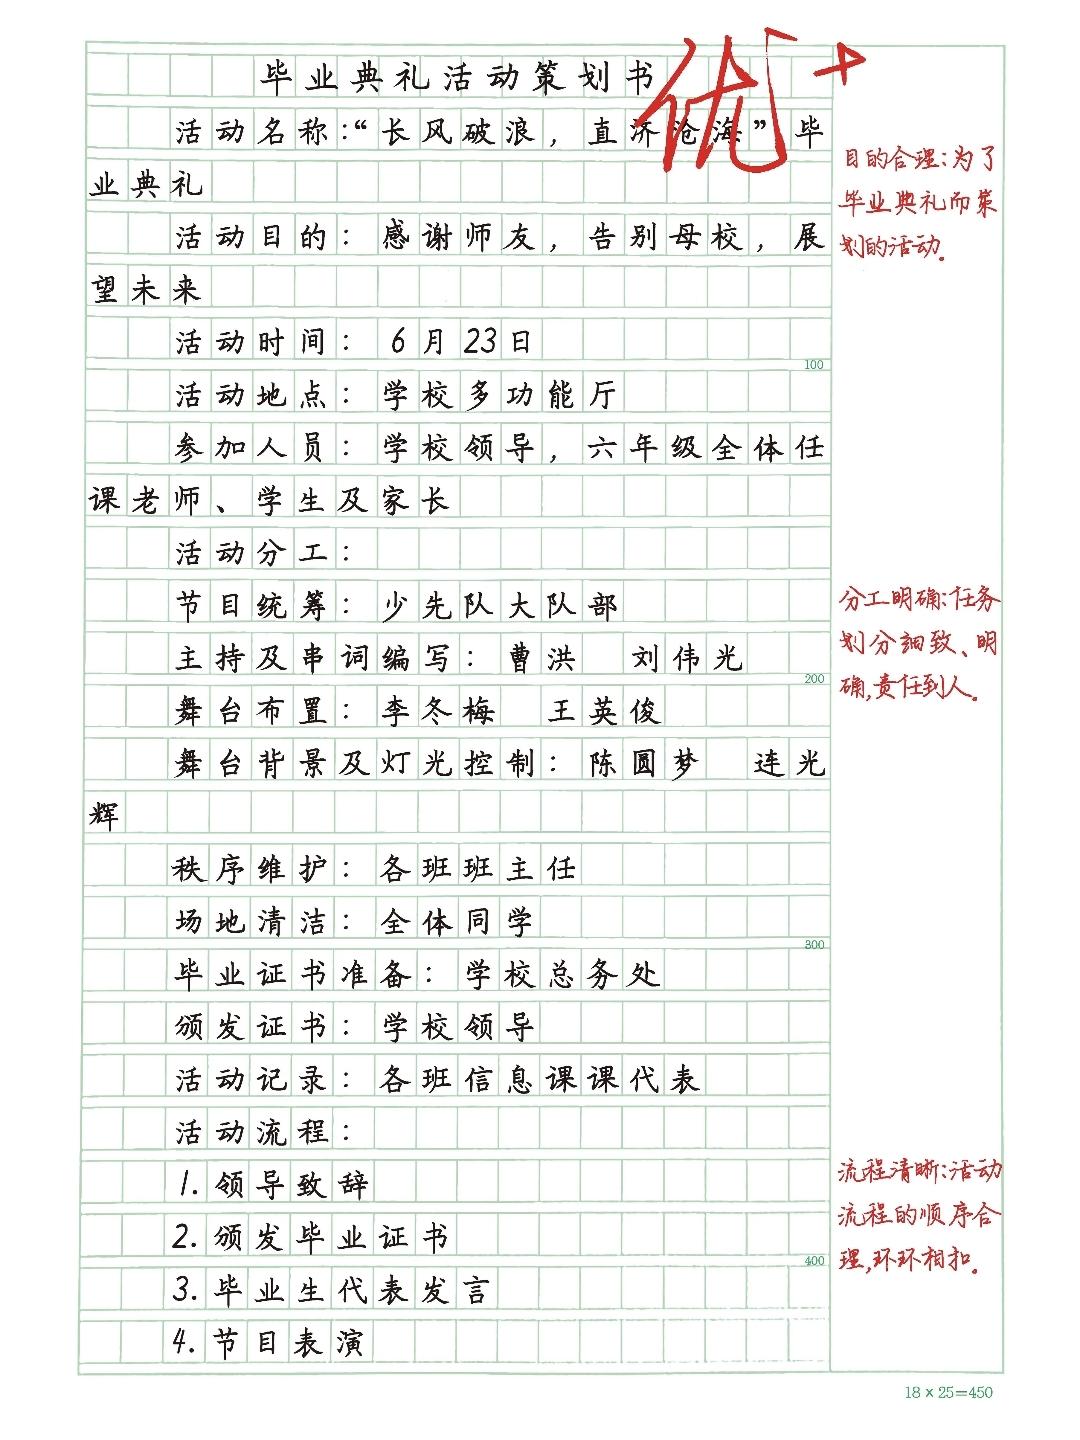 毕业典礼活动策划书
优+
活动名称：“长风破浪，直济沧海”毕
业典礼
活动目的：感谢师友，告别母校，展
望未来
活动时间：6月23日
100
活动地点：学校多功能厅
参加人员：学校领导，六年级全体任
课老师、学生及家长
活动分工：
节目统筹：少先队大队部
主持及串词编写：曹洪 刘伟光
200
舞台布置：李冬梅 王英俊
舞台背景及灯光控制：陈圆梦 连光
辉
秩序维护：各班班主任
场地清洁：全体同学
300
毕业证书准备：学校总务处
颁发证书：学校领导
活动记录：各班信息课课代表
活动流程：
1.领导致辞
2.颁发毕业证书
400
3.毕业生代表发言
4.节目表演
目的合理：为了
毕业典礼而策
划的活动。
分工明确：任务
划分细致、明
确，责任到人。
流程清晰：活动
流程的顺序合
理，环环相扣。
18×25=450